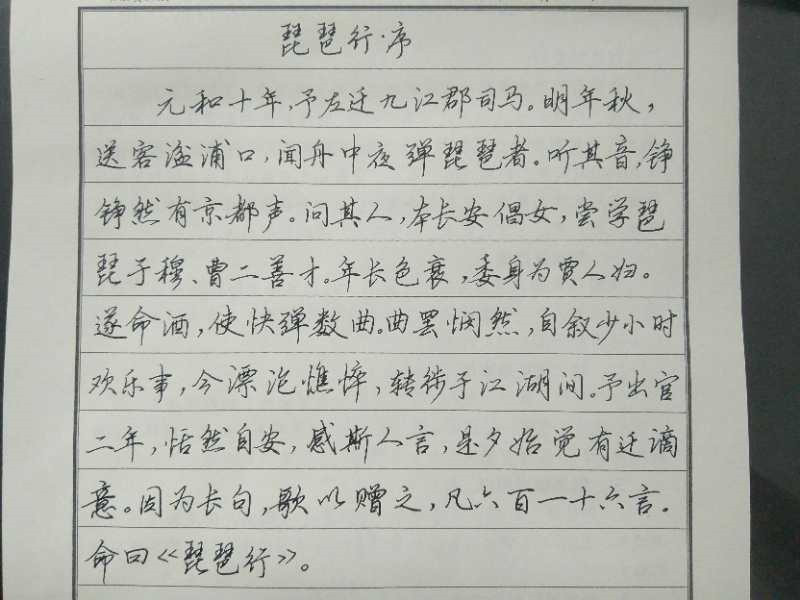 琵琶行·序
元和十年，予左迁九江郡司马。明年秋，
送客湓浦口，闻舟中夜弹琵琶者。听其音，铮
铮然有京都声。问其人，本长安倡女，尝学琵
琵于穆、曹二善才。年长色衰，委身为贾人妇。
遂命酒，使快弹数曲。曲罢悯然，自叙少小时
欢乐事，今漂沦憔悴，转徙于江湖间。予出官
二年，恬然自安，感斯人言，是夕始觉有迁谪
意。因为长句，歌以赠之，凡六百一十六言。
命曰《琵琶行》。